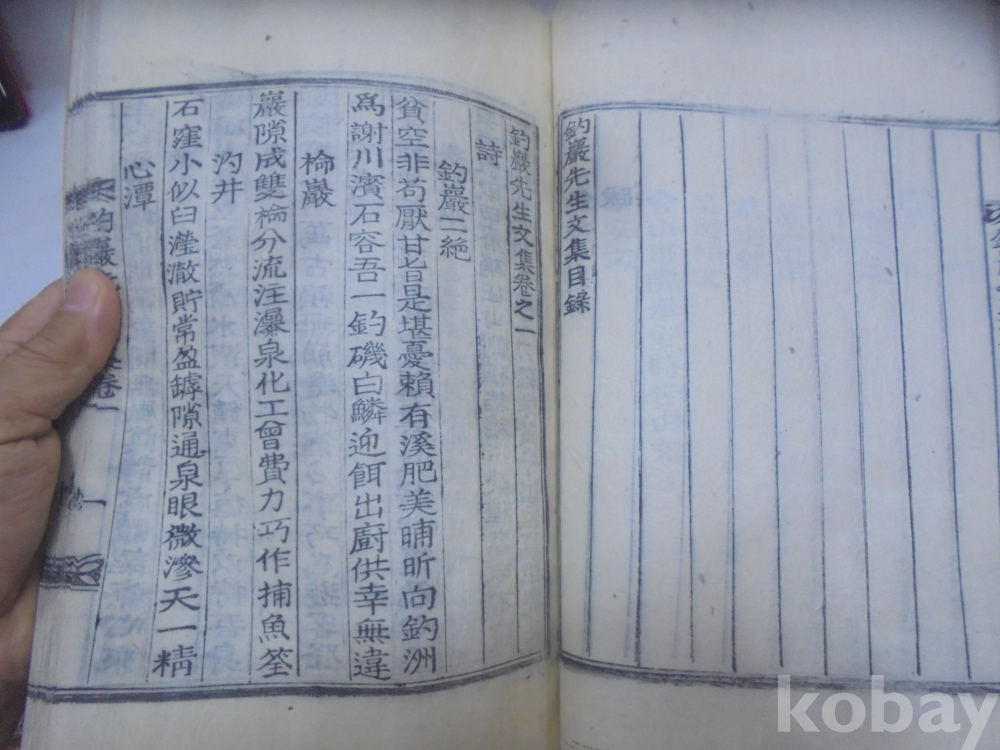 釣巖先生文集目錄
釣巖先生文集卷之一
詩
釣巖二絶
貧空非苟厭甘旨是堪憂賴有溪肥美晡昕向釣洲
爲謝川濱石容吾一釣磯白鱗迎餌出廚供幸無違
棆巖
巖隙成雙棆分流注瀑泉化工曾費力巧作捕魚筌
汋井
石窪小似臼瀅澈貯常盈罅隙通泉眼微滲天一精
心潭
卷一
kobay